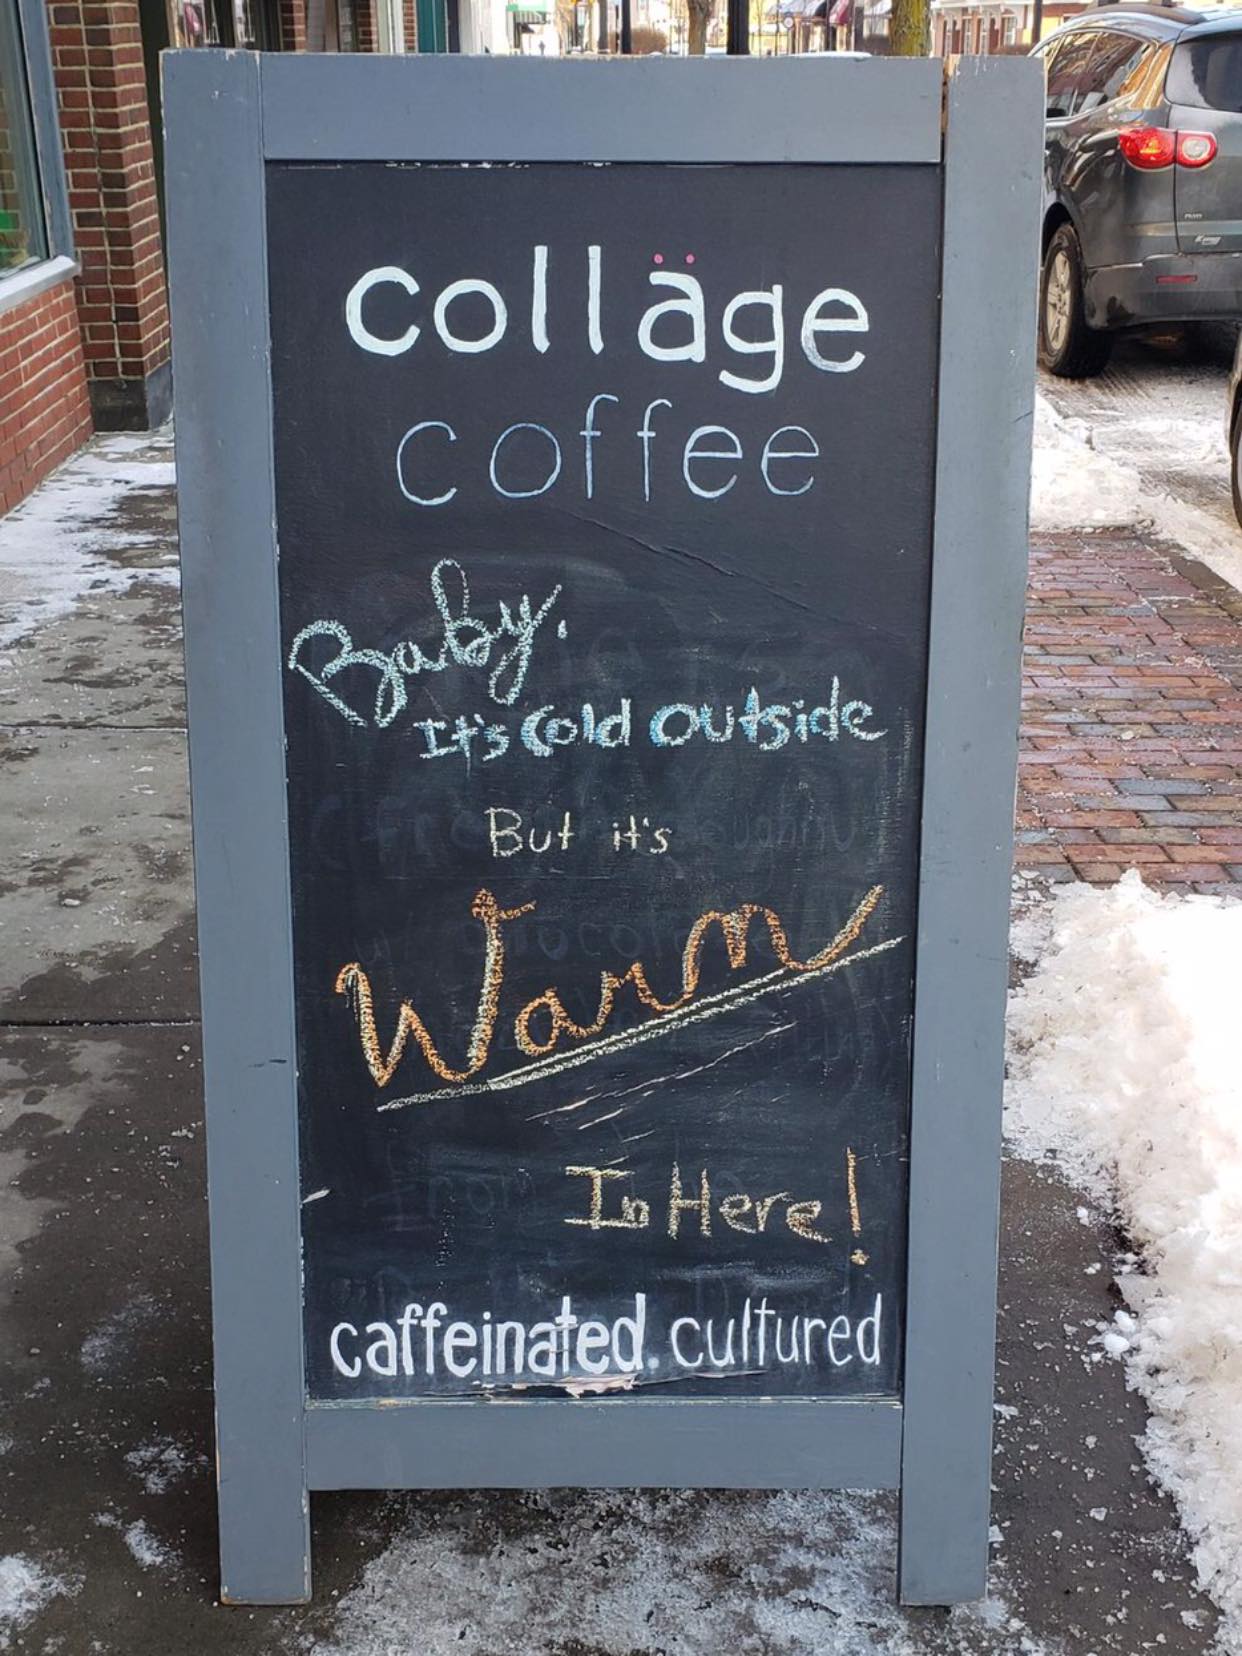 colläge
coffee
Baby,
It's Cold outside
But it's
Warm
In Here!
caffeinated. cultured